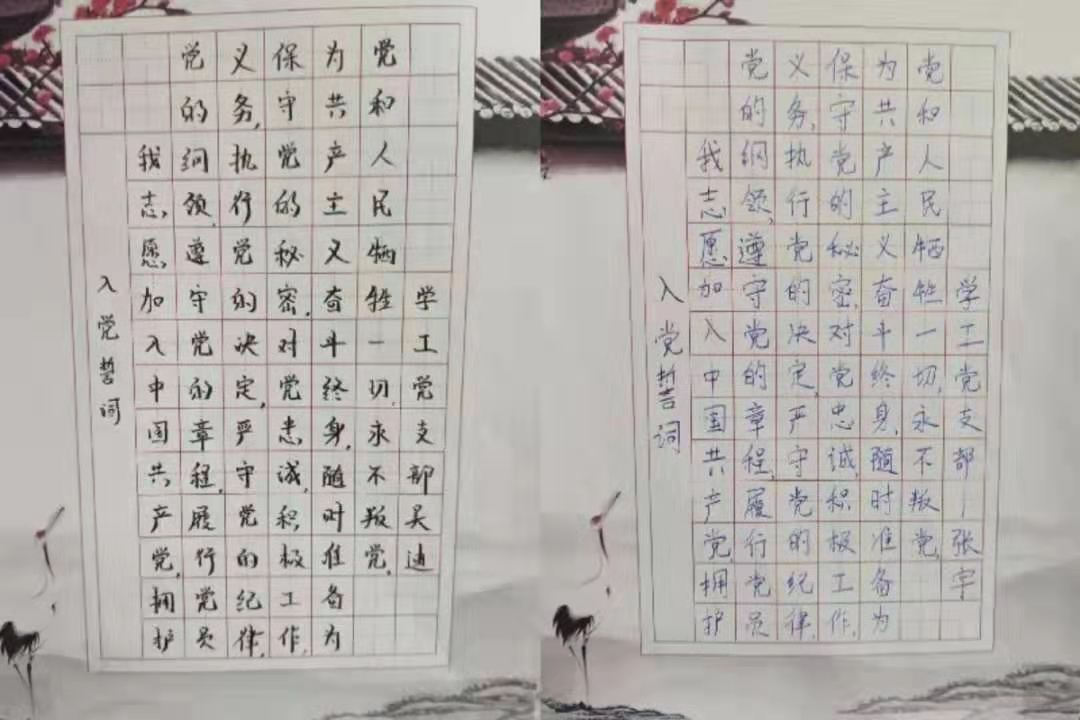 入党誓词
我志愿加入中国共产党,拥护
党的纲领,遵守党的章程,履行党员
义务,执行党的决定,严守党的纪律,
保守党的秘密,对党忠诚,积极工作,
为共产主义奋斗终身,随时准备为
党和人民牺牲一切,永不叛党,
学工党支部吴迪
入党誓词
我志愿加入中国共产党,拥护
党的纲领,遵守党的章程,履行党员
义务,执行党的决定,严守党的纪律,
保守党的秘密,对党忠诚,积极工作,
为共产主义奋斗终身,随时准备为
党和人民牺牲一切,永不叛党,
学工党支部—张宇